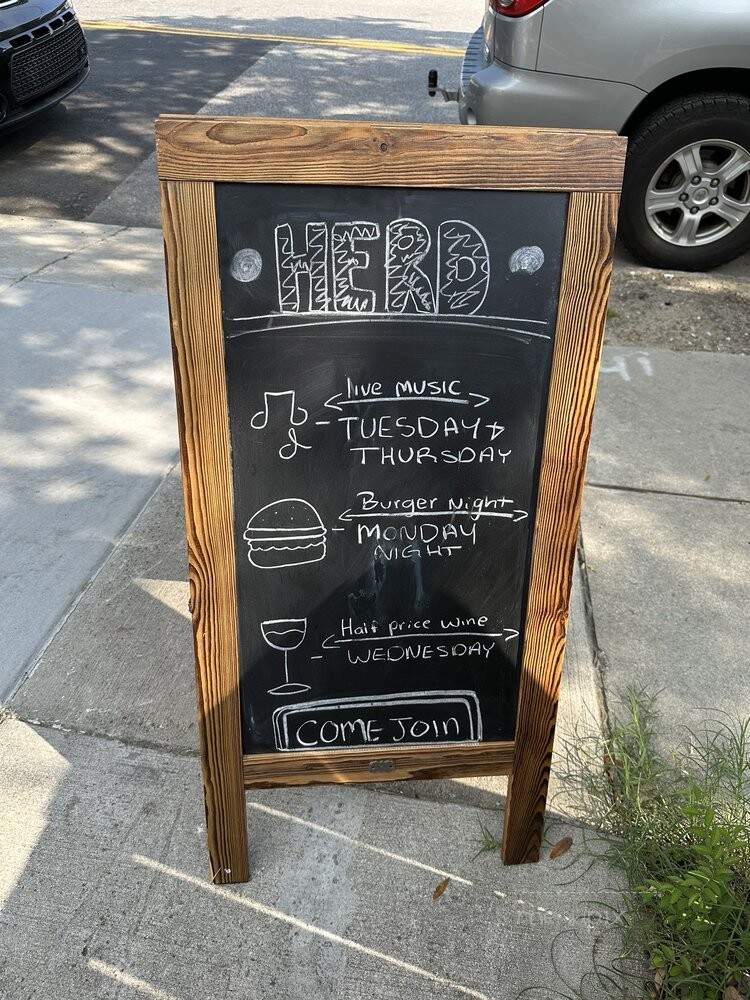 HERD
live MUSIC
TUESDAY +
THURSDAY
Burger Night
MONDAY
NIGHT
Half price wine
WEDNESDAY
COME JOIN